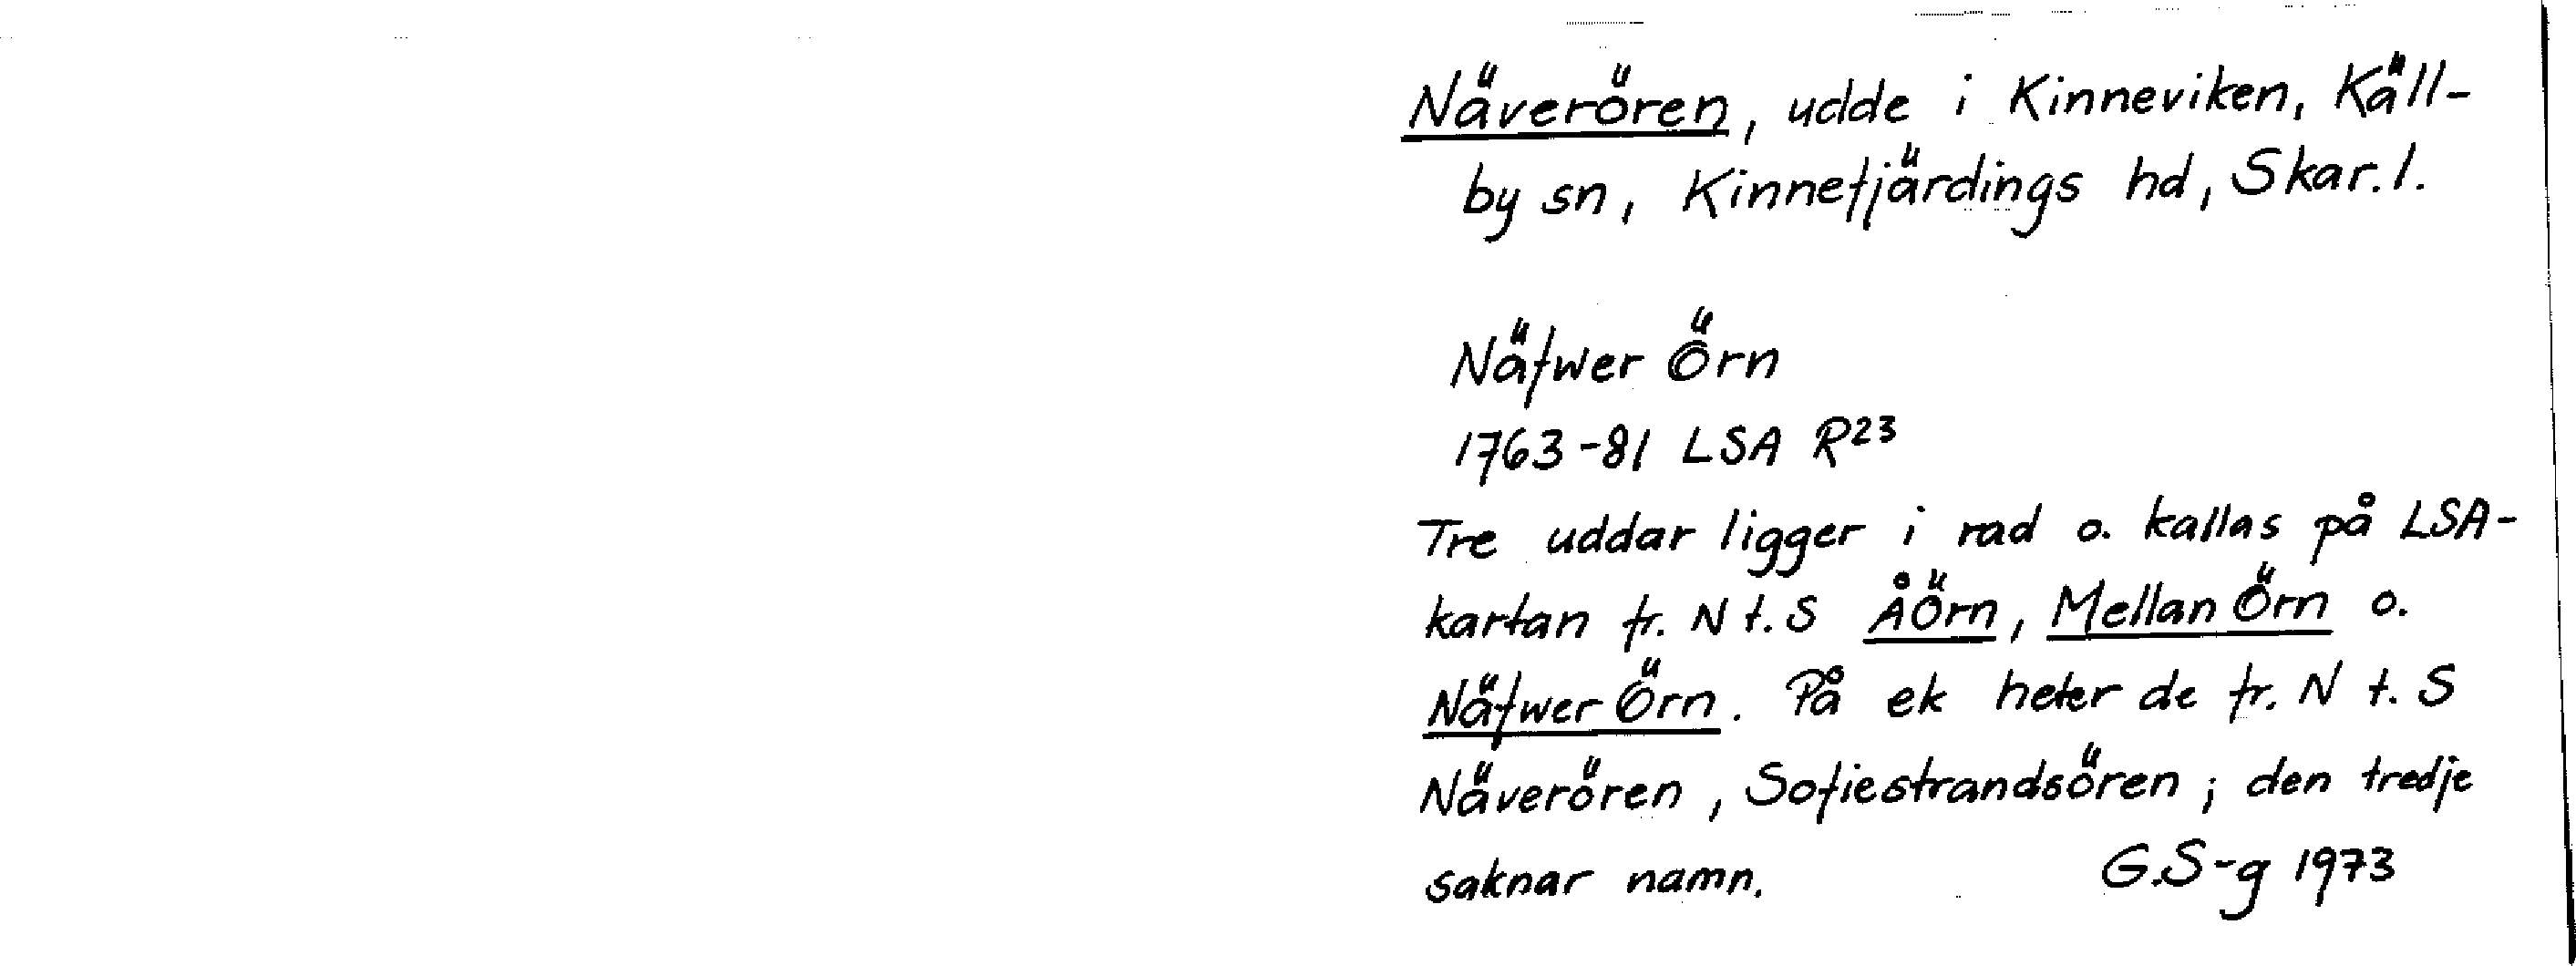 Näverören, udde i Kinneviken, Käll-
by sn, Kinnefjärdings hd, Skar. l.
Näfwer Örn
1763-81 LSA R23
Tre uddar ligger i rad o. kallas på LSA-
kartan fr. N t. S ÅÖrn, Mellan Örn o.
Näfwer Örn. På ek heter de fr. N t. S
Näverören, Sofiestrandsören; den tredje
saknar namn. G.S-g 1973